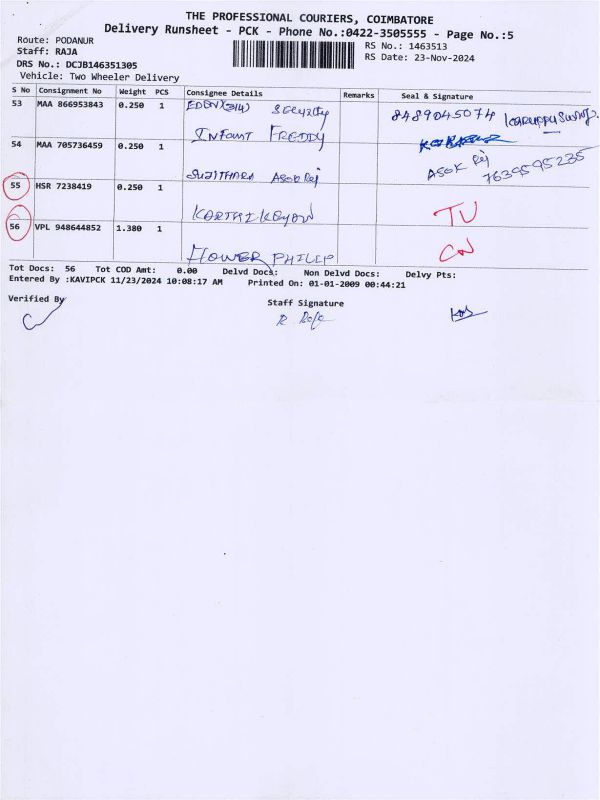 THE PROFESSIONAL COURIERS, COIMBATORE
Delivery Runsheet - PCK - Phone No.:0422-3505555 - Page No.:5
Route: PODANUR
Staff: RAJA
DRS No.: DCJB146351305
Vehicle: Two Wheeler Delivery
RS No.: 1463513
RS Date: 23-Nov-2024
S No Consignment No Weight PCS Consignee Details Remarks Seal & Signature
53 MAA 866953843 0.250 1 8489045074
INFANT FREDDY
54 MAA 705736459 0.250 1 ASOK Rj
7639595235
SUJITHARA ASOK Rj
55 HSR 7238419 0.250 1 TU
KARTHIKAYAN
56 VPL 948644852 1.380 1 CN
FLOWER PHILIP
Tot Docs: 56 Tot COD Amt: 0.00 Delvd Docs: Non Delvd Docs: Delvy Pts:
Entered By :KAVIPCK 11/23/2024 10:08:17 AM Printed On: 01-01-2009 00:44:21
Verified By Staff Signature
R. Raja